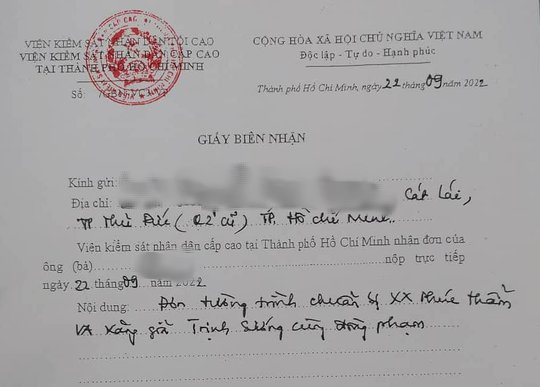 VIỆN KIỂM SÁT NHÂN DÂN TỐI CAO
VIỆN KIỂM SÁT NHÂN DÂN CẤP CAO
TẠI THÀNH PHỐ HỒ CHÍ MINH
Số:
CỘNG HÒA XÃ HỘI CHỦ NGHĨA VIỆT NAM
Độc lập - Tự do - Hạnh phúc
Thành phố Hồ Chí Minh, ngày 22 tháng 09 năm 2022
GIẤY BIÊN NHẬN
Kính gửi:
Địa chỉ: Cát Lái,
TP Thủ Đức (Q2 cũ) TP. Hồ Chí Minh.
Viện kiểm sát nhân dân cấp cao tại Thành phố Hồ Chí Minh nhận đơn của
ông (bà) nộp trực tiếp
ngày 22 tháng 09 năm 2022
Nội dung: Đơn tường trình chuẩn bị XX Phúc thẩm
VA Xăng giả Trịnh Sướng cùng đồng phạm